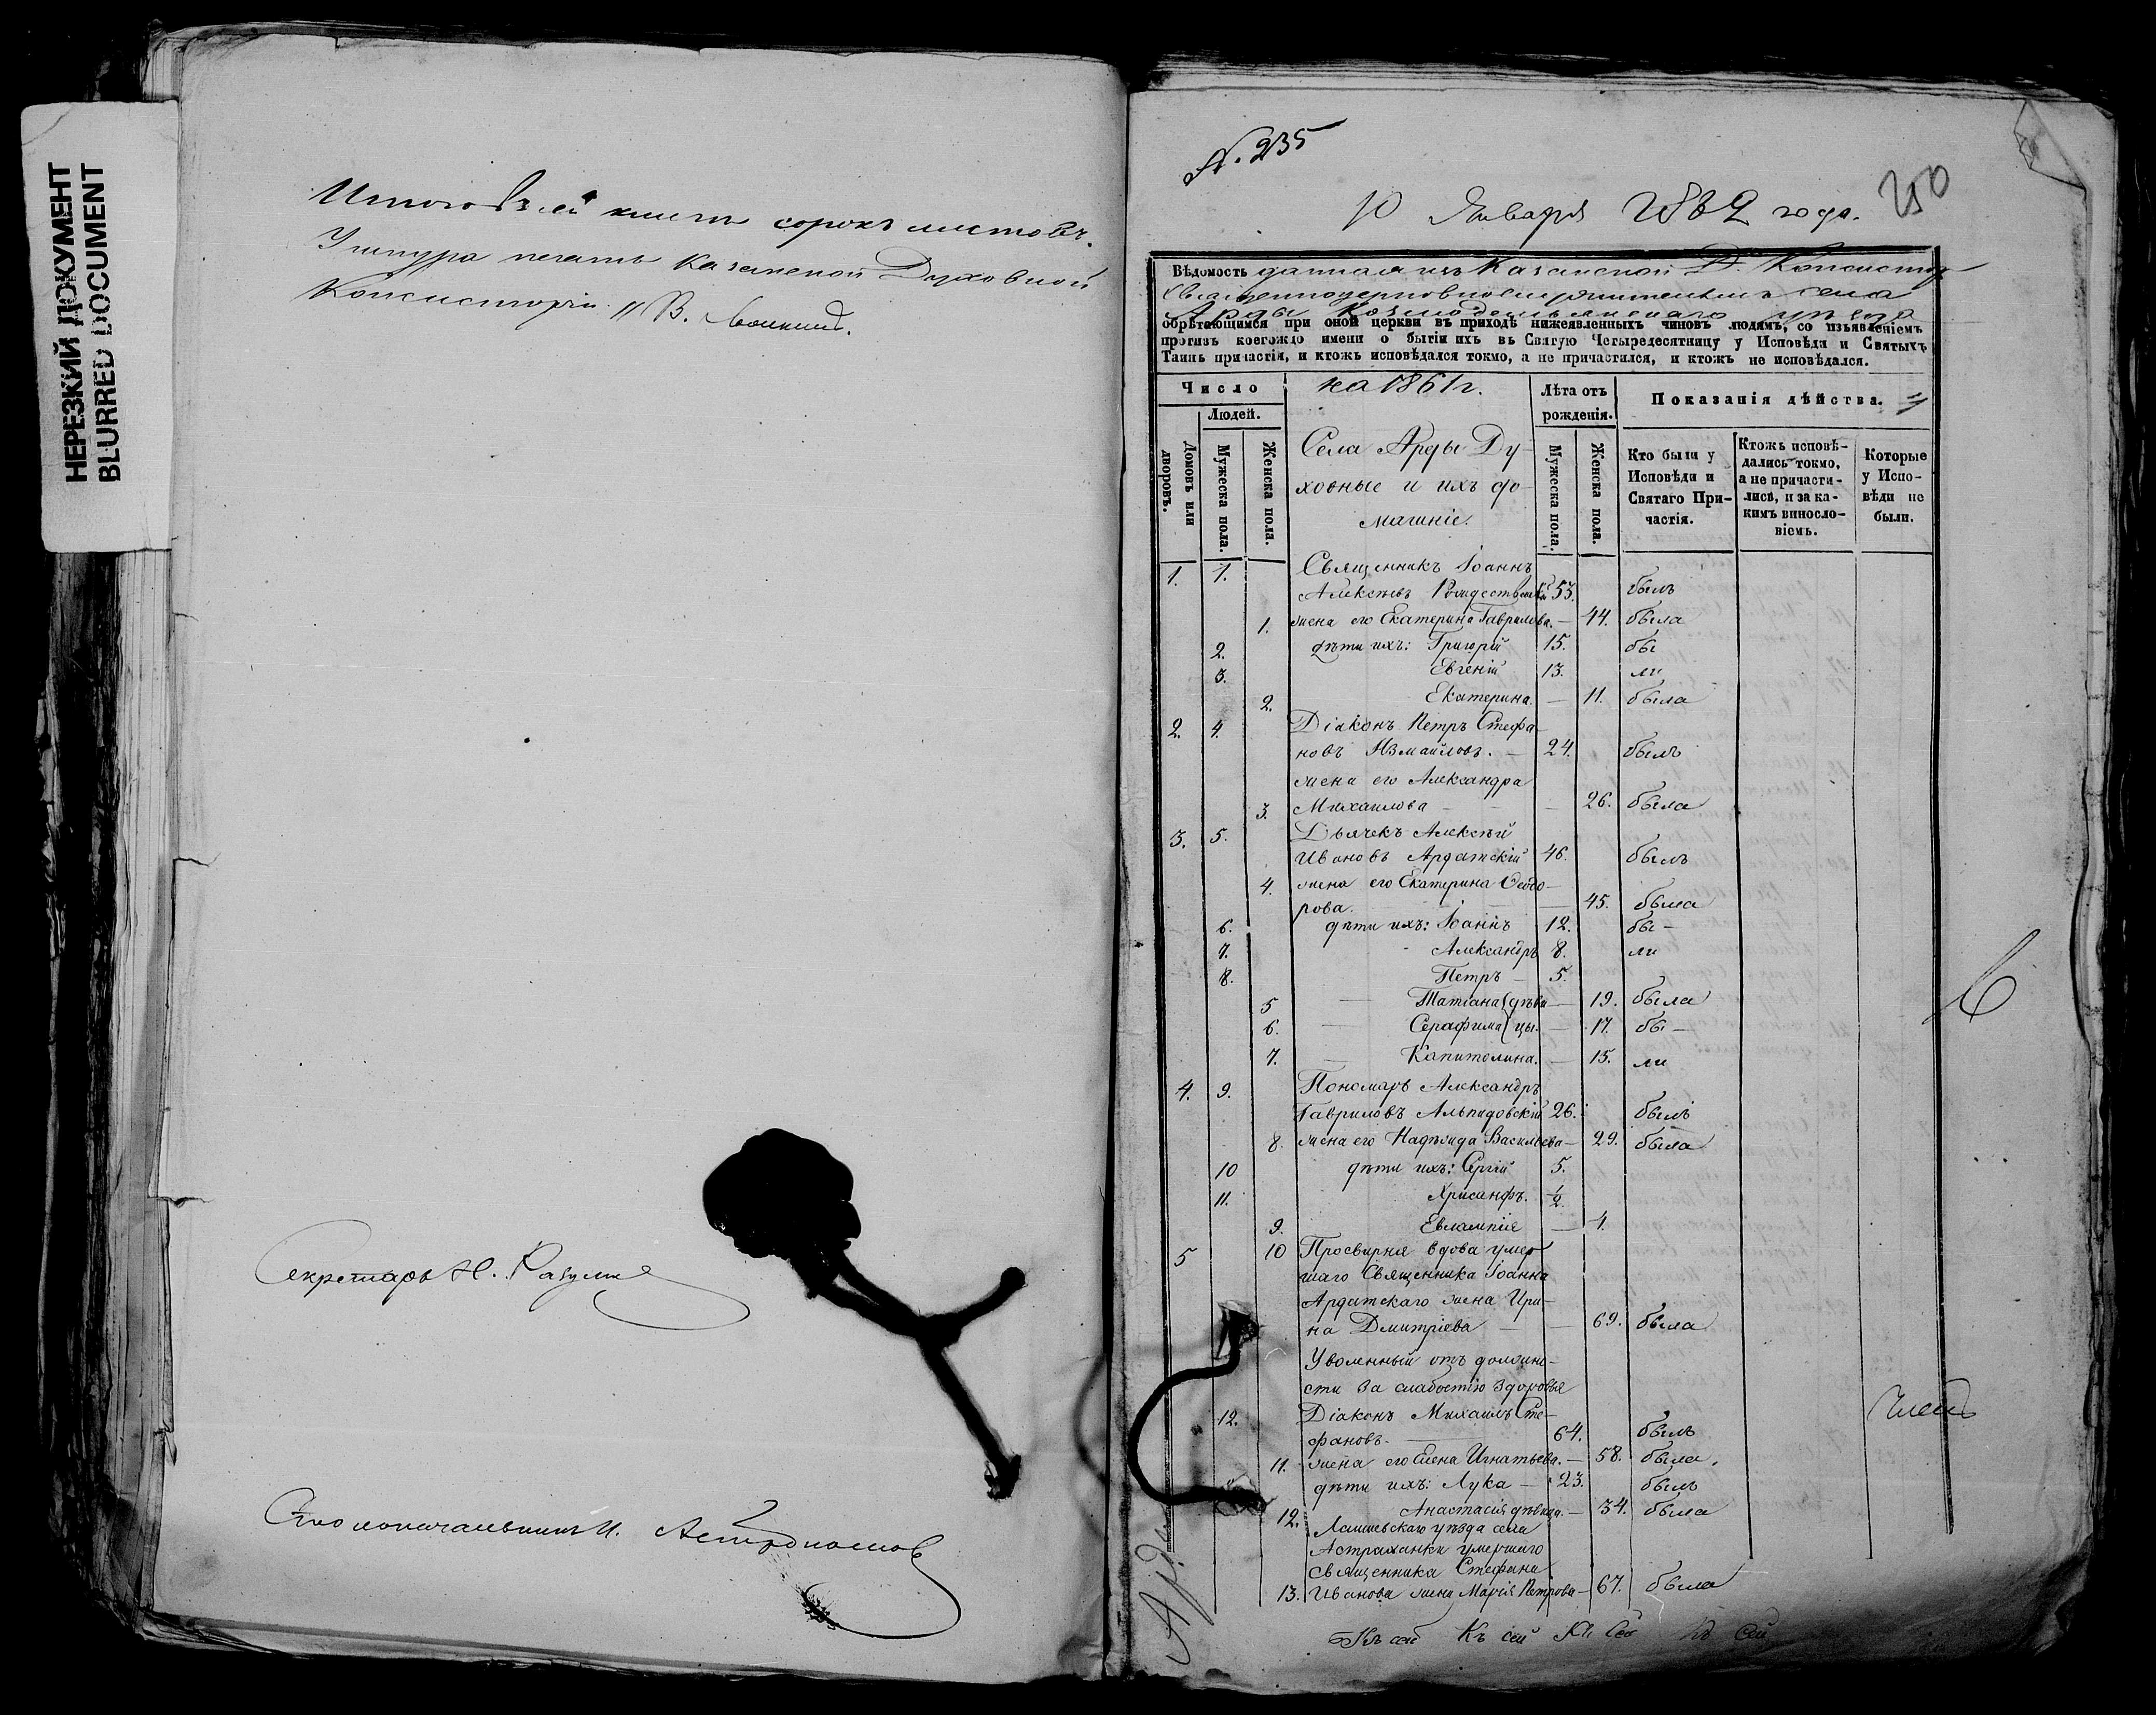 НЕРЕЗКИЙ ДОКУМЕНТ
BLURRED DOCUMENT
Итого въ сей книгѣ сорокъ листовъ.
У шнура печать Казанской Духовной
Консисторіи
Секретарь Н.
Столоначальникъ И. Астрономовъ
№. 235
10 Января 1862 года.
250
Вѣдомость данная изъ Казанской Д. Консистор
священноцерковнослужителямъ села
Арды Козмодемьянскаго уѣзда
обрѣтающимся при оной церкви въ приходѣ нижеявленныхъ чиновъ людямъ, со изъявленіемъ
противъ коегождо имени о бытіи ихъ въ Святую Четыредесятницу у Исповѣди и Святыхъ
Таинъ причастія, и ктожъ исповѣдался токмо, а не причастился, и ктожъ не исповѣдался.
Число
на 1861 г.
Лѣта отъ рожденія.
Показанія дѣйства.
Людей.
Домовъ или дворовъ.
Мужеска пола.
Женска пола.
Села Арды Ду-
ховные и ихъ до-
машніе.
Мужеска пола.
Женска пола.
Кто были у Исповѣди и Святаго При-частія.
Ктожъ исповѣ-дались токмо, а не причасти-лись, и за ка-кимъ винсло-віемъ.
Которые у Испо-вѣди не были.
1. 1. Священникъ Іоаннъ
Алексѣевъ Рождественскій 53. былъ
1. жена его Екатерина Гаврилова. — 44. была
2. дѣти ихъ: Григорій 15. бы
3. Евгеній 13. ли
2. Екатерина. — 11. была
2. 4. Діаконъ Петръ Стефа-
новъ Измайловъ. — 24. былъ
жена его Александра
3. Михаилова — — 26. была
3. 5. Дьячекъ Алексѣй
Ивановъ Ардатскій 46. былъ
4. жена его Екатерина Ѳеодо-
рова. — 45. была
6. дѣти ихъ: Іоаннъ 12. бы-
7. Александръ 8. ли
8. Петръ — 5.
5 — Татіана (дѣви — 19. была
6. — Серафима (цы. — 17. бы-
7. — Капитолина. — 15. ли
4. 9. Пономарь Александръ
Гавриловъ Альпидовскій 26. былъ
8. жена его Надежда Васильева — 29. была
10 дѣти ихъ: Сергій 5.
11. Хрисанфъ. ½
9. Евлампія — 4.
5 10 Просвирня вдова умер
шаго Священника Іоанна
Ардатскаго жена Ири-
на Дмитріева — — 69. была
Уволенный отъ должно-
сти за слабостію здоровья
12. Діаконъ Михаилъ Сте-
фановъ. — 64. былъ
11. жена его Елена Игнатьева. — 58. была.
дѣти ихъ: Лука — 23. былъ
12. Анастасія дѣвица. — 34. была
Лаишевскаго уѣзда села
Астраханки умершаго
священника Стефана
13. Иванова жена Марія Петрова — 67. была
Къ сей Къ сей Къ сей Къ сей